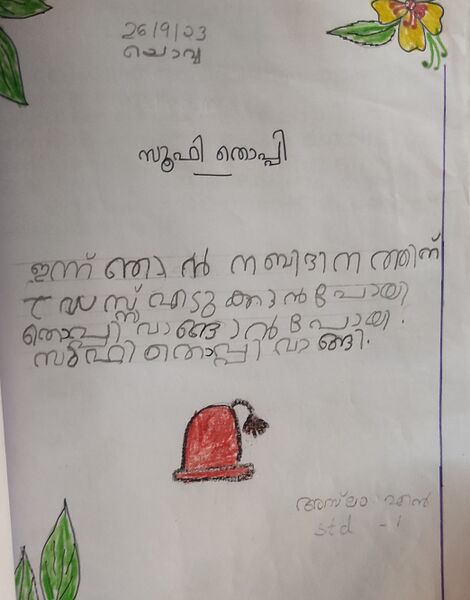 26/9/23
ചൊവ്വ
സൂഫി തൊപ്പി
ഇന്ന് ഞാൻ നബിദിനത്തിന്
ഡ്രസ്സ് എടുക്കാൻ പോയി
തൊപ്പി വാങ്ങാൻ പോയി.
സൂഫി തൊപ്പി വാങ്ങി.
എൻ
std - 1